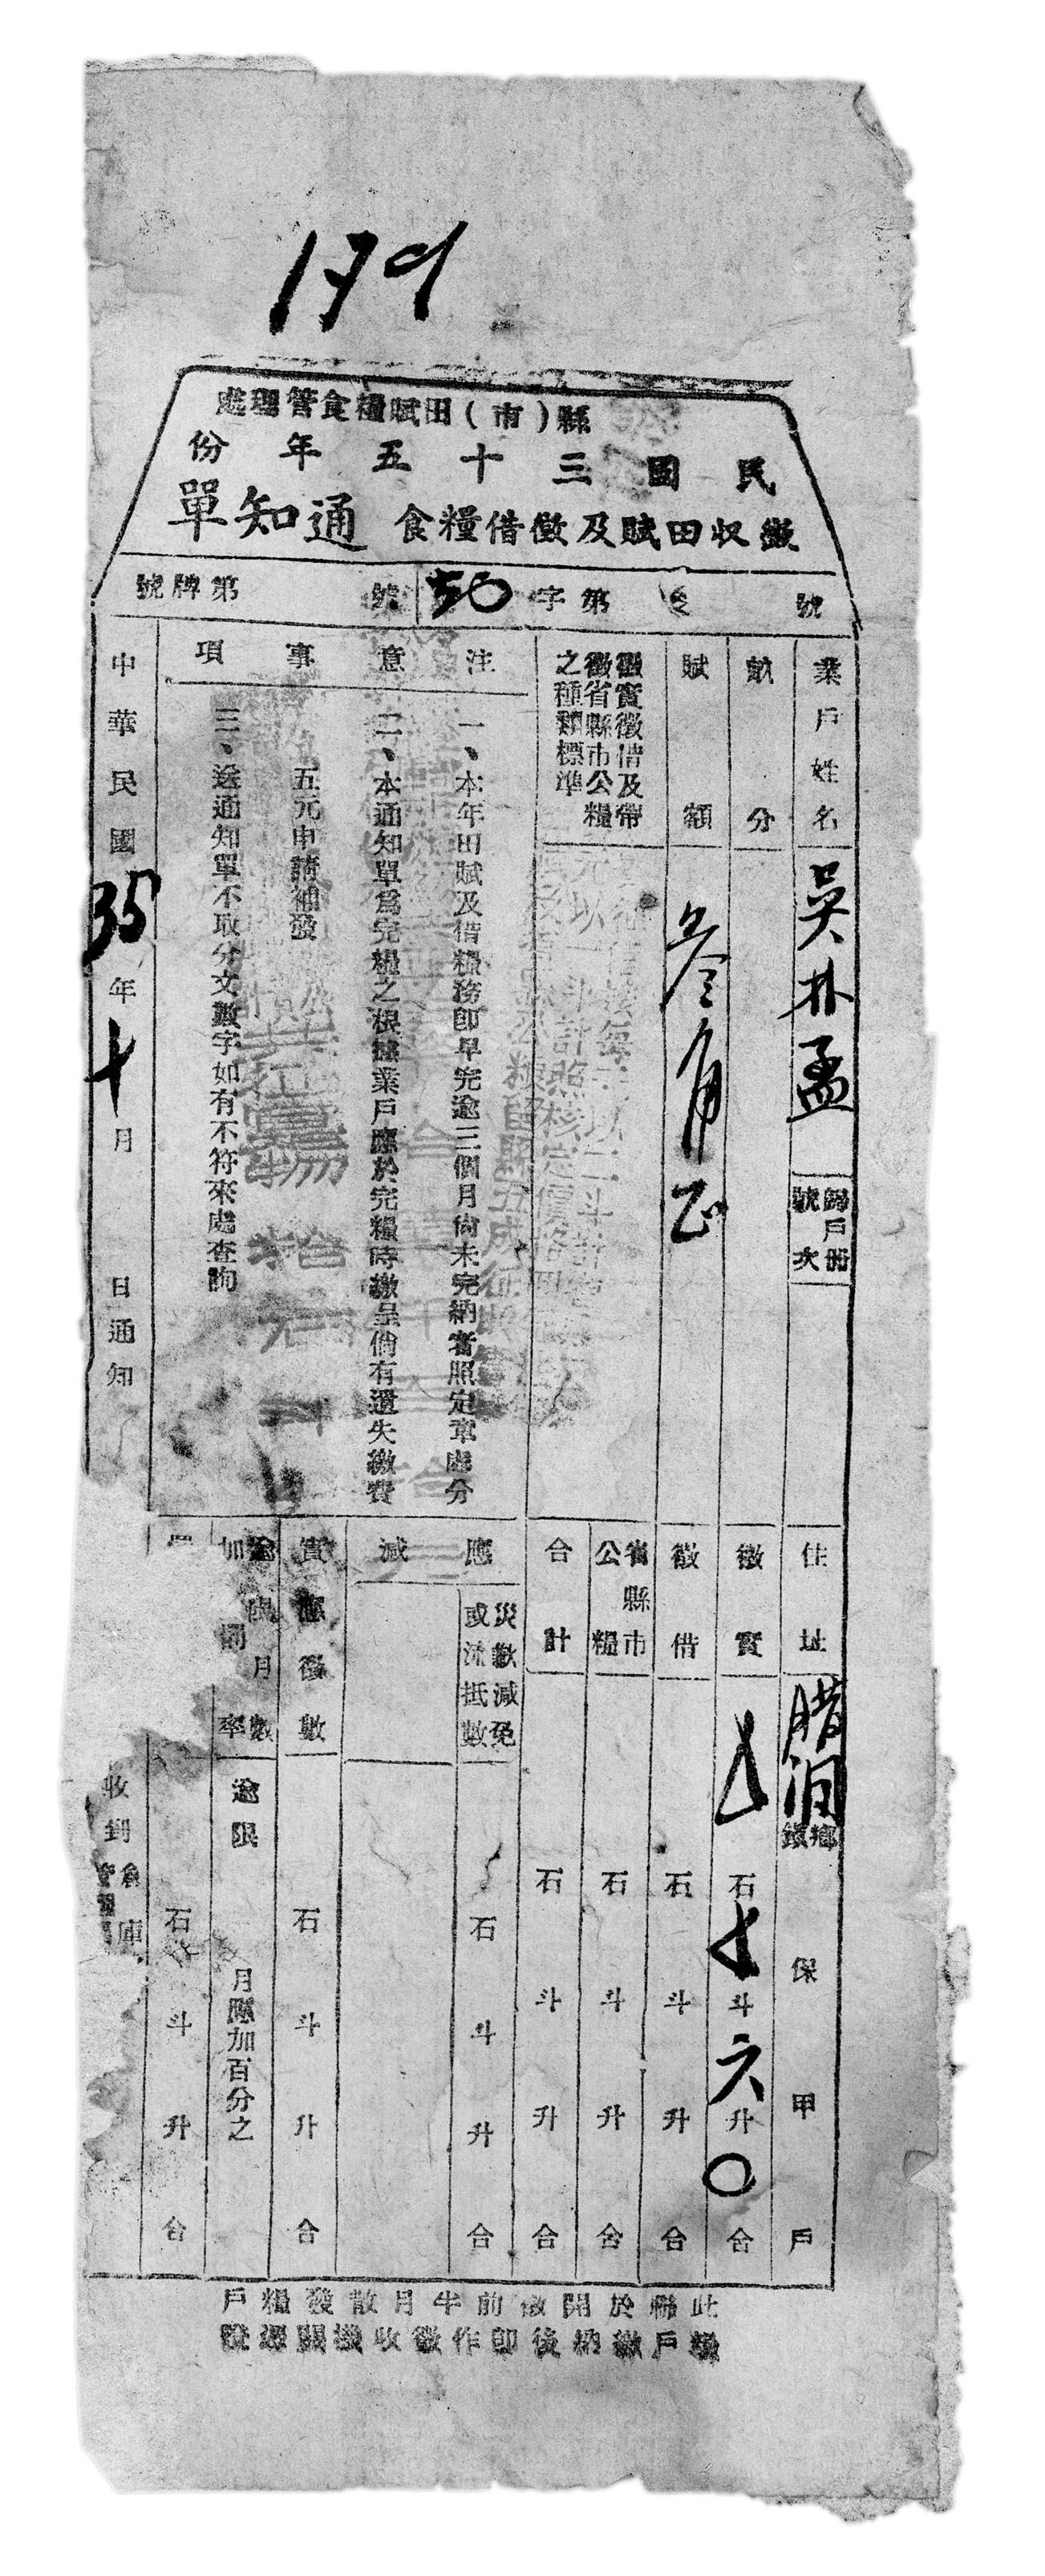 179
縣(市)田賦糧食管理處
民國三十五年份
徵收田賦及徵借糧食通知單
號 字第 號牌第
業戶姓名
吳朴孟
歸戶冊號次
住址
腊洞
鄉鎮 保 甲 戶
畝分
徵實
石七斗六升〇合
賦額
叁角正
徵借
石 斗 升 合
徵實徵借及帶
徵省縣市公糧
之種類標準
省縣市公糧
石 斗 升 合
合計
石 斗 升 合
注意事項
一、本年田賦及借糧務卽早完逾三個月尙未完納者照定章處分
二、本通知單爲完糧之根據業戶應於完糧時繳呈倘有遺失繳費
五元申請補發
三、送通知單不取分文數字如有不符來處查詢
應減
災歉減免
或流抵數
石 斗 升 合
實應徵數
石 斗 升 合
月數
率
逾限 月應加百分之
石 斗 升 合
中華民國35年十月 日通知
收到 倉庫
此聯於開徵前半月散發糧戶
糧戶繳納後卽作徵收機關憑證